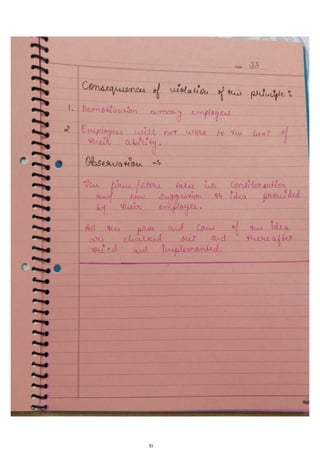 Date 33
Consequences of violation of this principle :
1. Demotivation among employees
2. Employees will not work to the best of
their ability.
Observation →
The firm / store take in consideration
any new suggestion or idea provided
by their employee.
All the pros and cons of the idea
are chalked out and thereafter
tried and implemented
31